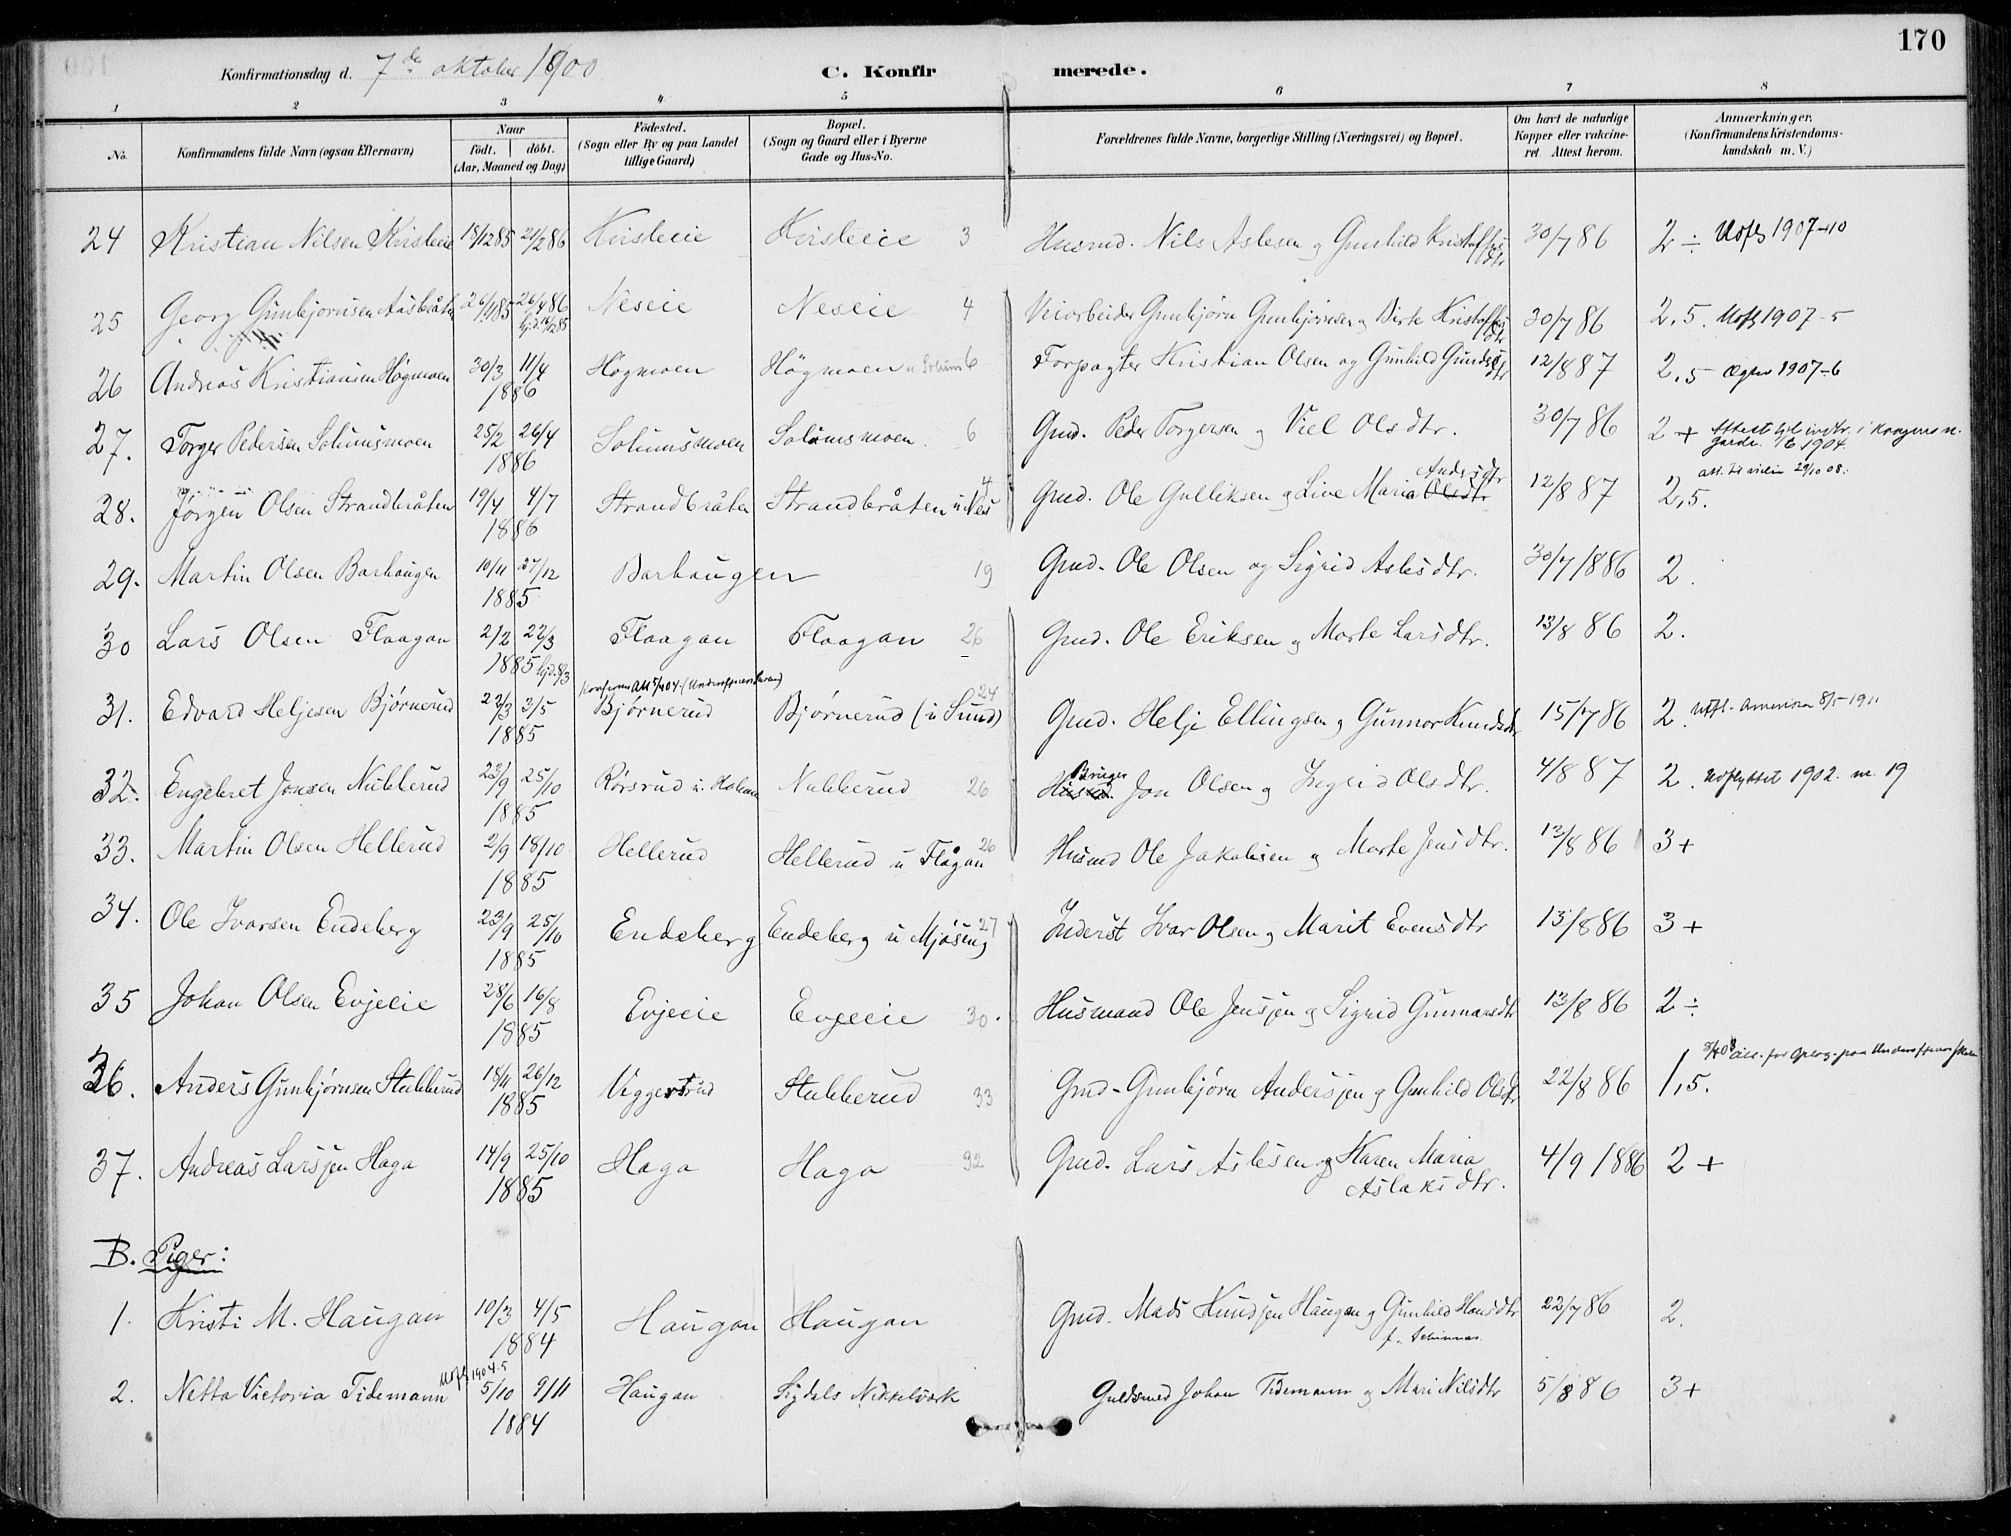 170
Konfirmationsdag d. 7de oktober 1900
C. Konfirmerede.
1 2 3 4 5 6 7 8
No.
Konfirmandens fulde Navn (ogsaa Efternavn)
Naar
födt. döbt.
(Aar, Maaned og Dag)
Födested.
(Sogn eller By og paa Landet
tillige Gaard)
Bopæl.
(Sogn og Gaard eller i Byerne
Gade og Hus-No.
Forældrenes fulde Navne, borgerlige Stilling (Næringsvei) og Bopæl.
Om havt de naturlige
Kopper eller vakcine-
ret. Attest herom.
Anmærkninger,
(Konfirmandens Kristendoms-
kundskab m. V.)
24 Kristian Nilsen Kristieie 18/12 85 21/2 86 Kristieie Kristieie 3 Husmd. Nils Aslesen og Gunhild Kristoffersdtr 30/7 86 2 ÷ Udfl 1907-10
25 Georg Gunbjørnsen Aasbråten 26/11 85 26/4 86 hjd. 18/12 85 Neseie Neseie 4 Veiarbeider Gunbjørn Gunbjørnsen og Birte Kristoffersdtr 30/7 86 2,5. Udfl 1907-5
26 Andreas Kristiansen Høgmoen 30/3 11/4 1886 Høgmoen Högmoen u Solum 6 Forpagter Kristian Olsen og Gunhild Gundersdtr 12/8 87 2,5 Ægtev 1907-6
27. Torger Pedersen Solumsmoen 25/2 26/4 1886 Solumsmoen Solumsmoen. 6 Gmd. Peder Torgersen og Viel Olsdtr. 30/7 86 2 + Attest til indtr. i Kongens n. garde. 1/6 1904.
28. Jörgen Olsen Strandbråten 19/4 4/7 1886 Strandbråten Strandbråten u Nes 4 Gmd. Ole Gulliksen og Live Maria Olsdtr Andersdtr 12/8 87 2,5. att. til vielse 29/10 08.
29. Martin Olsen Barhaugen 10/11 27/12 1885 Barhaugen 19 Gmd. Ole Olsen og Sigrid Aslesdtr. 30/7 1886 2.
30 Lars Olsen Flaagan 2/2 22/3 1885 hjd. 8/3 Flaagan Flaagan 26 Gmd. Ole Eriksen og Marte Larsdtr. 13/8 86 2.
31. Edvard Heljesen Bjørnerud 22/3 3/5 1885 Bjørnerud Bjørnerud (u Sund) 24 Gmd. Helje Ellingsen og Gunnor Knudsdtr 15/7 86 2. Utfl. Amerika 8/5 1911
32. Engebret Jonsen Nubberud 23/9 25/10 1885 Rørsrud u. Holmen Nubberud 26 Husmd. Bruger Jon Olsen og Ingrid Olsdtr. 4/8 87 2. Udflyttet 1902. m. 19
33. Martin Olsen Hellerud 2/9 18/10 1885 Hellerud Hellerud u Flågan 26 Husmd Ole Jakobsen og Marte Jensdtr. 13/8 86 3 +
34. Ole Ivarsen Endeberg 23/9 25/10 1885 Endeberg Endeberg u Mjøseng 27 Inderst Ivar Olsen og Marit Evensdtr 13/8 86 3 +
35 Johan Olsen Evjeeie 28/6 16/8 1885 Evjeeie Evjeeie 30. Husmand Ole Jenssen og Sigrid Gunnarsdtr 13/8 86 2 ÷
36. Anders Gunbjørnsen Stubberud 18/11 26/12 1885 Viggerstrud Stubberud 33 Gmd. Gunbjörn Anderssen og Gunhild Olsdtr 22/8 86 1,5.
37. Andreas Larssen Haga 14/9 25/10 1885 Haga Haga 32 Gmd. Lars Aslesen og Karen Maria Aslaksdtr. 4/9 1886 2 +
B. Piger:
1. Kristi M. Haugan 10/3 4/5 1884 Haugan Haugan Gmd. Mads Knudsen Haugan og Gunhild Hansdtr 22/7 86 2.
2. Netta Victoria Tidemann Udfl 1904-5 5/10 9/11 1884 Haugan Sigdals Nikkelverk Guldsmed Johan Tidemann og Mari Nilsdtr 5/8 86 3 +